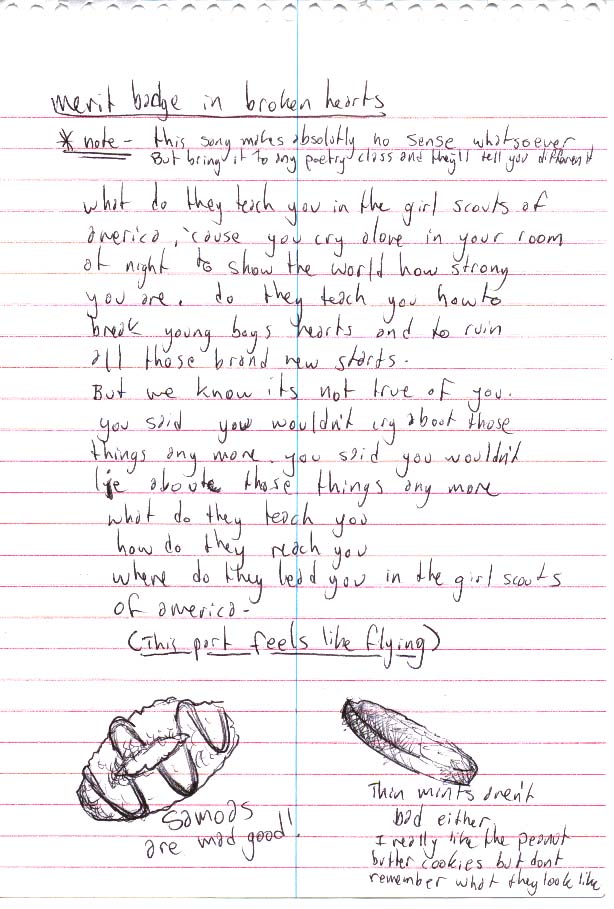 merit badge in broken hearts
* note - this song makes absolutly no sense whatsoever
But bring it to any poetry class and they'll tell you different
what do they teach you in the girl scouts of
america, 'cause you cry alone in your room
at night to show the world how strong
you are. do they teach you how to
break young boys hearts and to ruin
all those brand new starts.
But we know its not true of you.
you said you wouldn't cry about those
things any more. you said you wouldn't
lie about those things any more
what do they teach you
how do they reach you
where do they lead you in the girl scouts
of america -
(This part feels like flying)
Samoas
are mad good!
Thin mints aren't
bad either
I really like the peanut
butter cookies but dont
remember what they look like